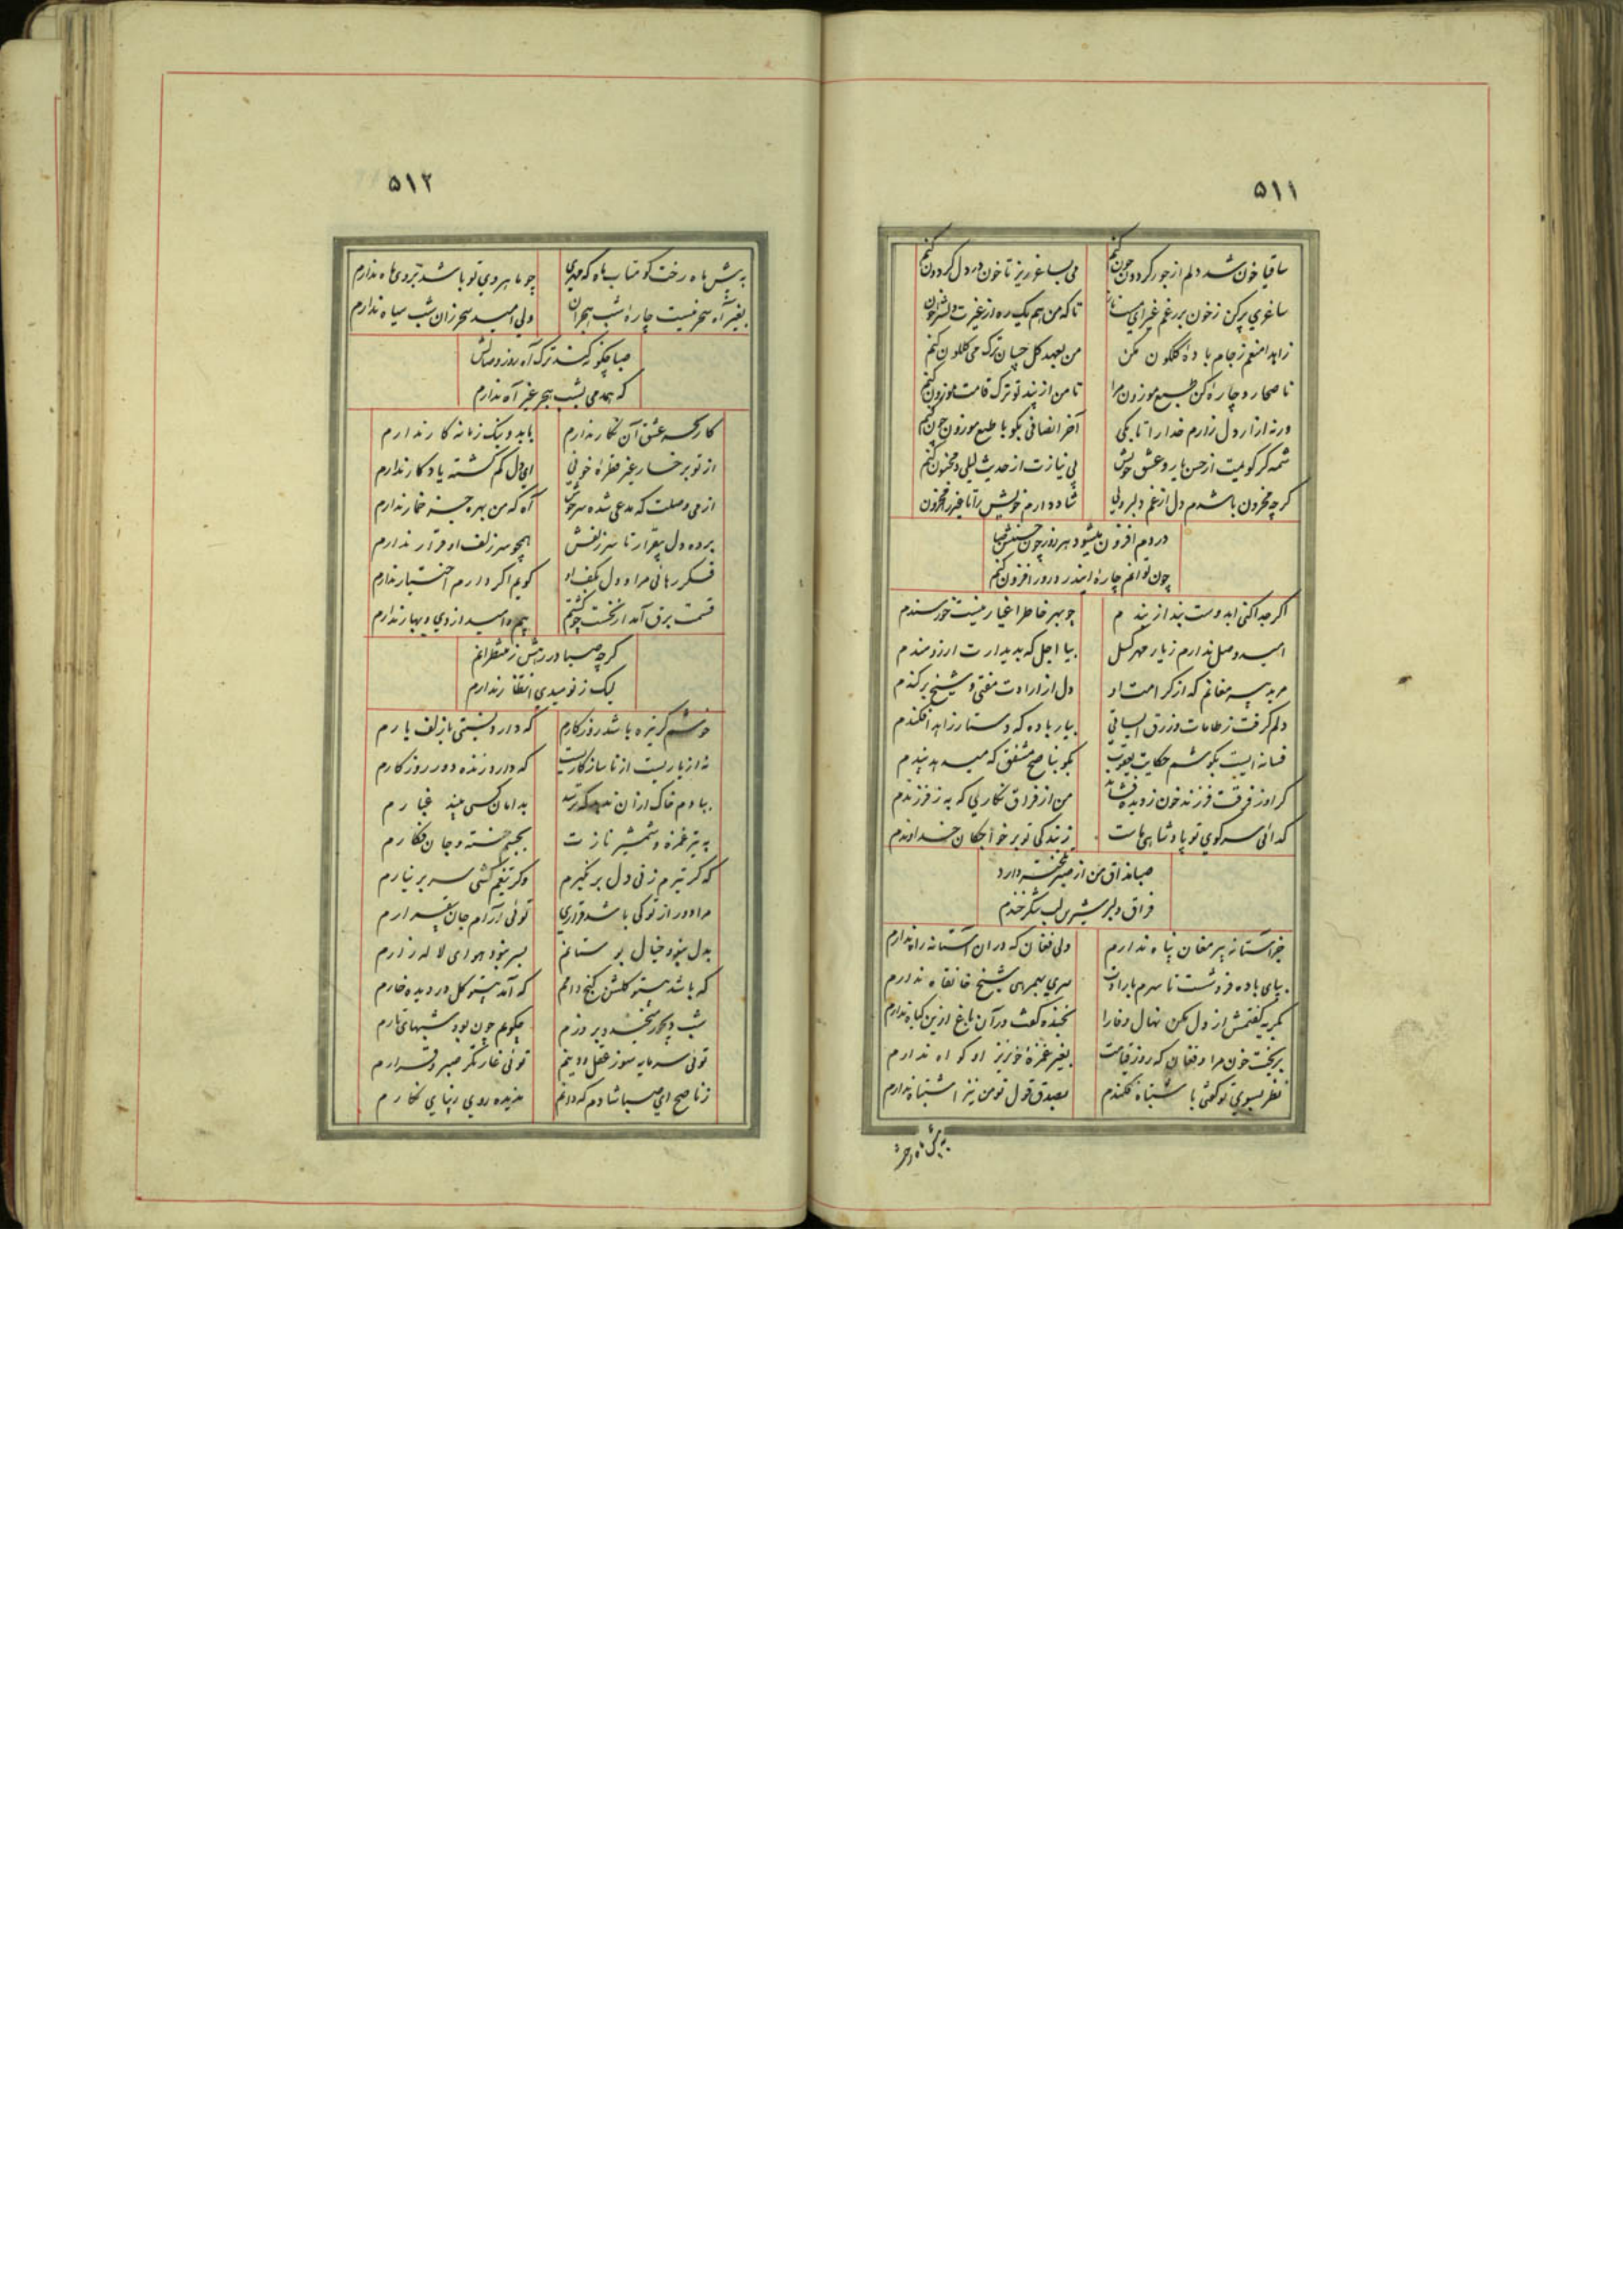 ۵۱۱
ساقیا خون شد دلم از جور گردون چون کنم می بساغر ریز تا خون در دل گردون کنم
ساغری پر کن ز خون بر رغم غیر ای تا که من هم یک ره از غیرت دلش خون
زاهدا منعم ز جام باده گلگون مکن من بعهد گل چسان ترک می گلگون کنم
ناصحا رو چاره کن طبع موزون مرا تا من از پند تو ترک قامت موزون کنم
ورنه آزار دل زارم خدا را تا بکی آخر انصافی بگو با طبع موزون چون کنم
شمه گر گویمت از حسن یار و عشق خویش بی نیازت از حدیث لیلی و مجنون کنم
گرچه محزون باشدم دل از غم دلبر ولی شاد دارم خویش را تا غیر را محزون
دردم افزون میشود هر روز چون حسنش صبا
چون توانم چاره این درد روز افزون کنم
اگر جدا کنی ایدوست بند از بندم چو مهر خاطر اغیار نیست خورسندم
امید وصل ندارم ز یار مهر گسل بیا اجل که بدیدارت آرزومندم
مرید پیر مغانم که از کرامت او دل از ارادت مفتی و شیخ برکندم
دلم گرفت ز طامات و زرق ایساقی بیار باده که دستار زاهد افکندم
فسانه ایست بگوشم حکایت یعقوب بگو بناصح مشفق که میدهد پندم
گر او ز فرقت فرزند خون ز دیده فشاند من از فراق نگاری که به ز فرزندم
گدائی سر کوی تو پادشاهی ماست ز بندگی تو بر خواجگان خداوندم
صبا مذاق من از صبر تلخ تر دارد
فراق دلبر شیرین لب شکرخندم
جز آستانه پیر مغان پناه ندارم ولی فغان که در آن آستانه راه ندارم
بپای باده فروشست تا سرم بارادت سری بهمرهی شیخ خانقاه ندارم
بگریه گفتمش از دل مکن نهال وفا را بخنده گفت در آن باغ ازین گیاه ندارم
بریخت خون مرا و فغان که روز قیامت بغیر غمزه خونریز او گواه ندارم
نظر بسوی تو گفتی باشتباه فکندم بصدق قول تو من نیز اشتباه ندارم
به پیش ماه رخت
۵۱۲
به پیش ماه رخت گو متاب ماه که مهری چو ماهروی تو باشد بروی ماه ندارم
بغیر آه سحر نیست چاره شب هجران ولی امید سحر زان شب سیاه ندارم
صبا چگونه کند ترک آه روز وصالش
که همدمی بشب هجر غیر آه ندارم
کار بجز عشق آن نگار ندارم با بد و نیک زمانه کار ندارم
از تو برخسار غیر قطره خونی ای دل گم گشته یادگار ندارم
از می وصلت که مدعی شده سرخوش آه که من بهره جز خمار ندارم
برده دل بیقرار تا سر زلفش همچو سر زلف او قرار ندارم
فکر رهائی مرا و دل بکف او گویم اگر دارم اختیار ندارم
قسمت برق آمد از نخست چو کشتم بیم و امید از دی و بهار ندارم
گرچه صبا در رهش ز منتظرانم
لیک ز نومیدی انتظار ندارم
خوشم گر تیره باشد روزگارم که دارد نسبتی با زلف یارم
نه از یاریست از ناسازگاریست که دارد زنده دور روزگارم
بدامان کسی غبارم
به تیر غمزه و شمشیر نازت بجسم خسته و جان فگارم
که گر تیرم زنی دل بر نگیرم وگر تیغم کشی سر بر نیارم
مرا دور از تو کی باشد قراری توئی آرام جان بیقرارم
بدل نبود خیال بوستانم بسر نبود هوای لاله زارم
که باشد بیتو گلشن کنج دامم که آمد بیتو گل در دیده خارم
شب دیجور خیزد ز روزم چگویم چون بود شبهای تارم
توئی سرمایه سوز عقل و دینم توئی غارتگر صبر و قرارم
ز ناصح ای صبا شادم که دانم ندیده روی زیبای نگارم